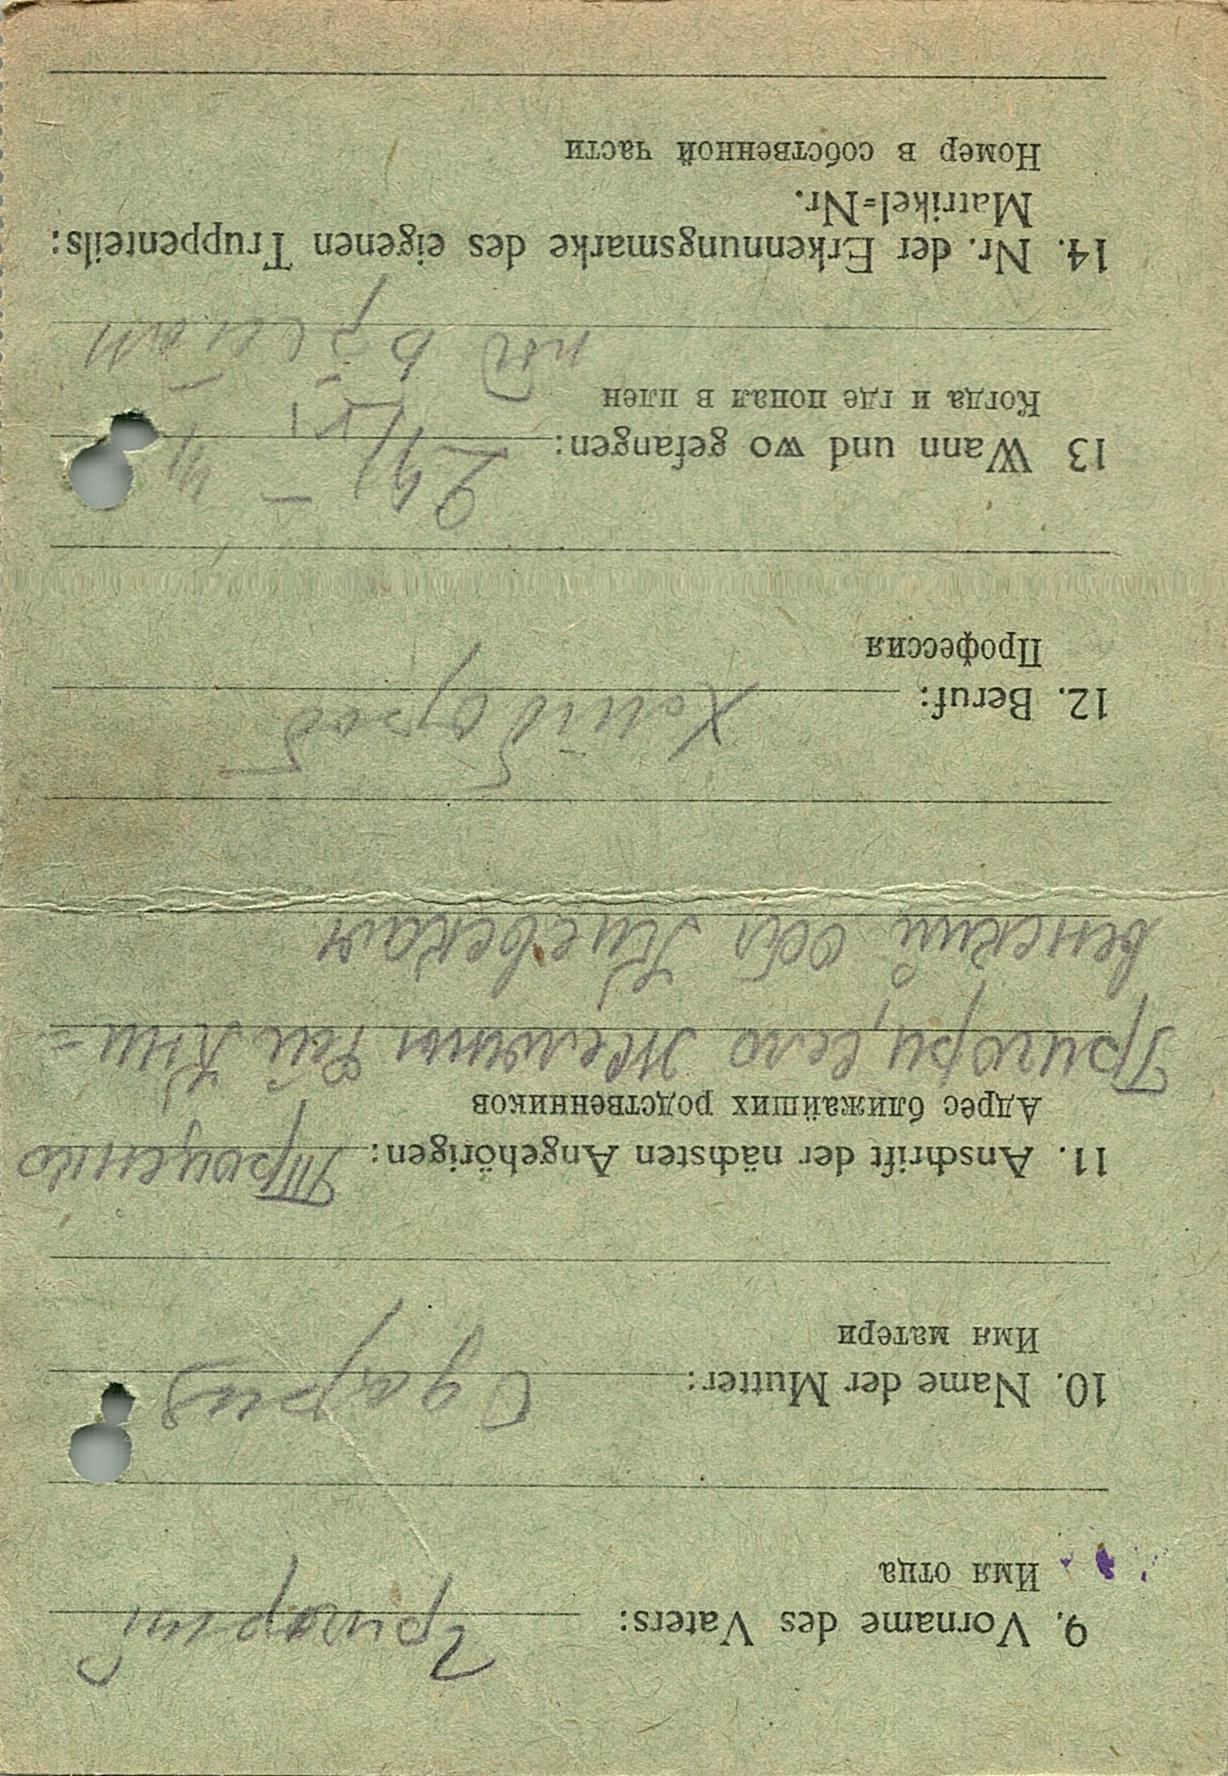 9. Vorname des Vaters: Григорий
Имя отца
10. Name der Mutter: Одария
Имя матери
11. Anschrift der nächsten Angehörigen: Троценко
Адрес ближайших родственников
Григори, село
венский обл Киевская
12. Beruf: Хлибороб
Профессия
13 Wann und wo gefangen:
Когда и где попал в плен
под
14. Nr. der Erkennungsmarke des eigenen Truppenteils:
Matrikel=Nr.
Номер в собственной части